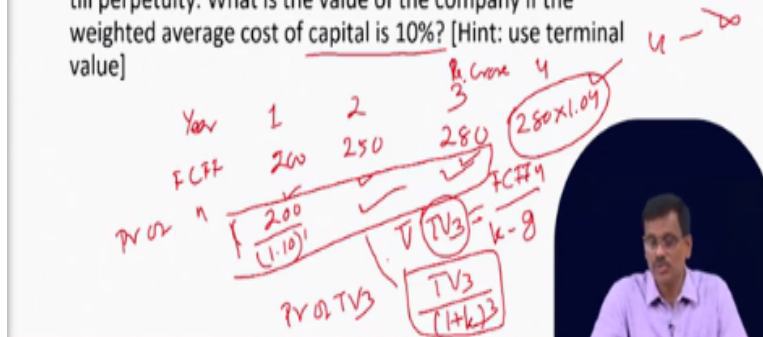 till perpetuity. What is the value of the company if the
weighted average cost of capital is 10%? [Hint: use terminal
value]
Rs. Crore
Year 1 2 3 4
4 — ∞
FCFF 200 250 280 280×1.04
PV of " 200/(1.10)¹
TV3 = FCFF4/k-g
PV of TV3 TV3/(1+k)³